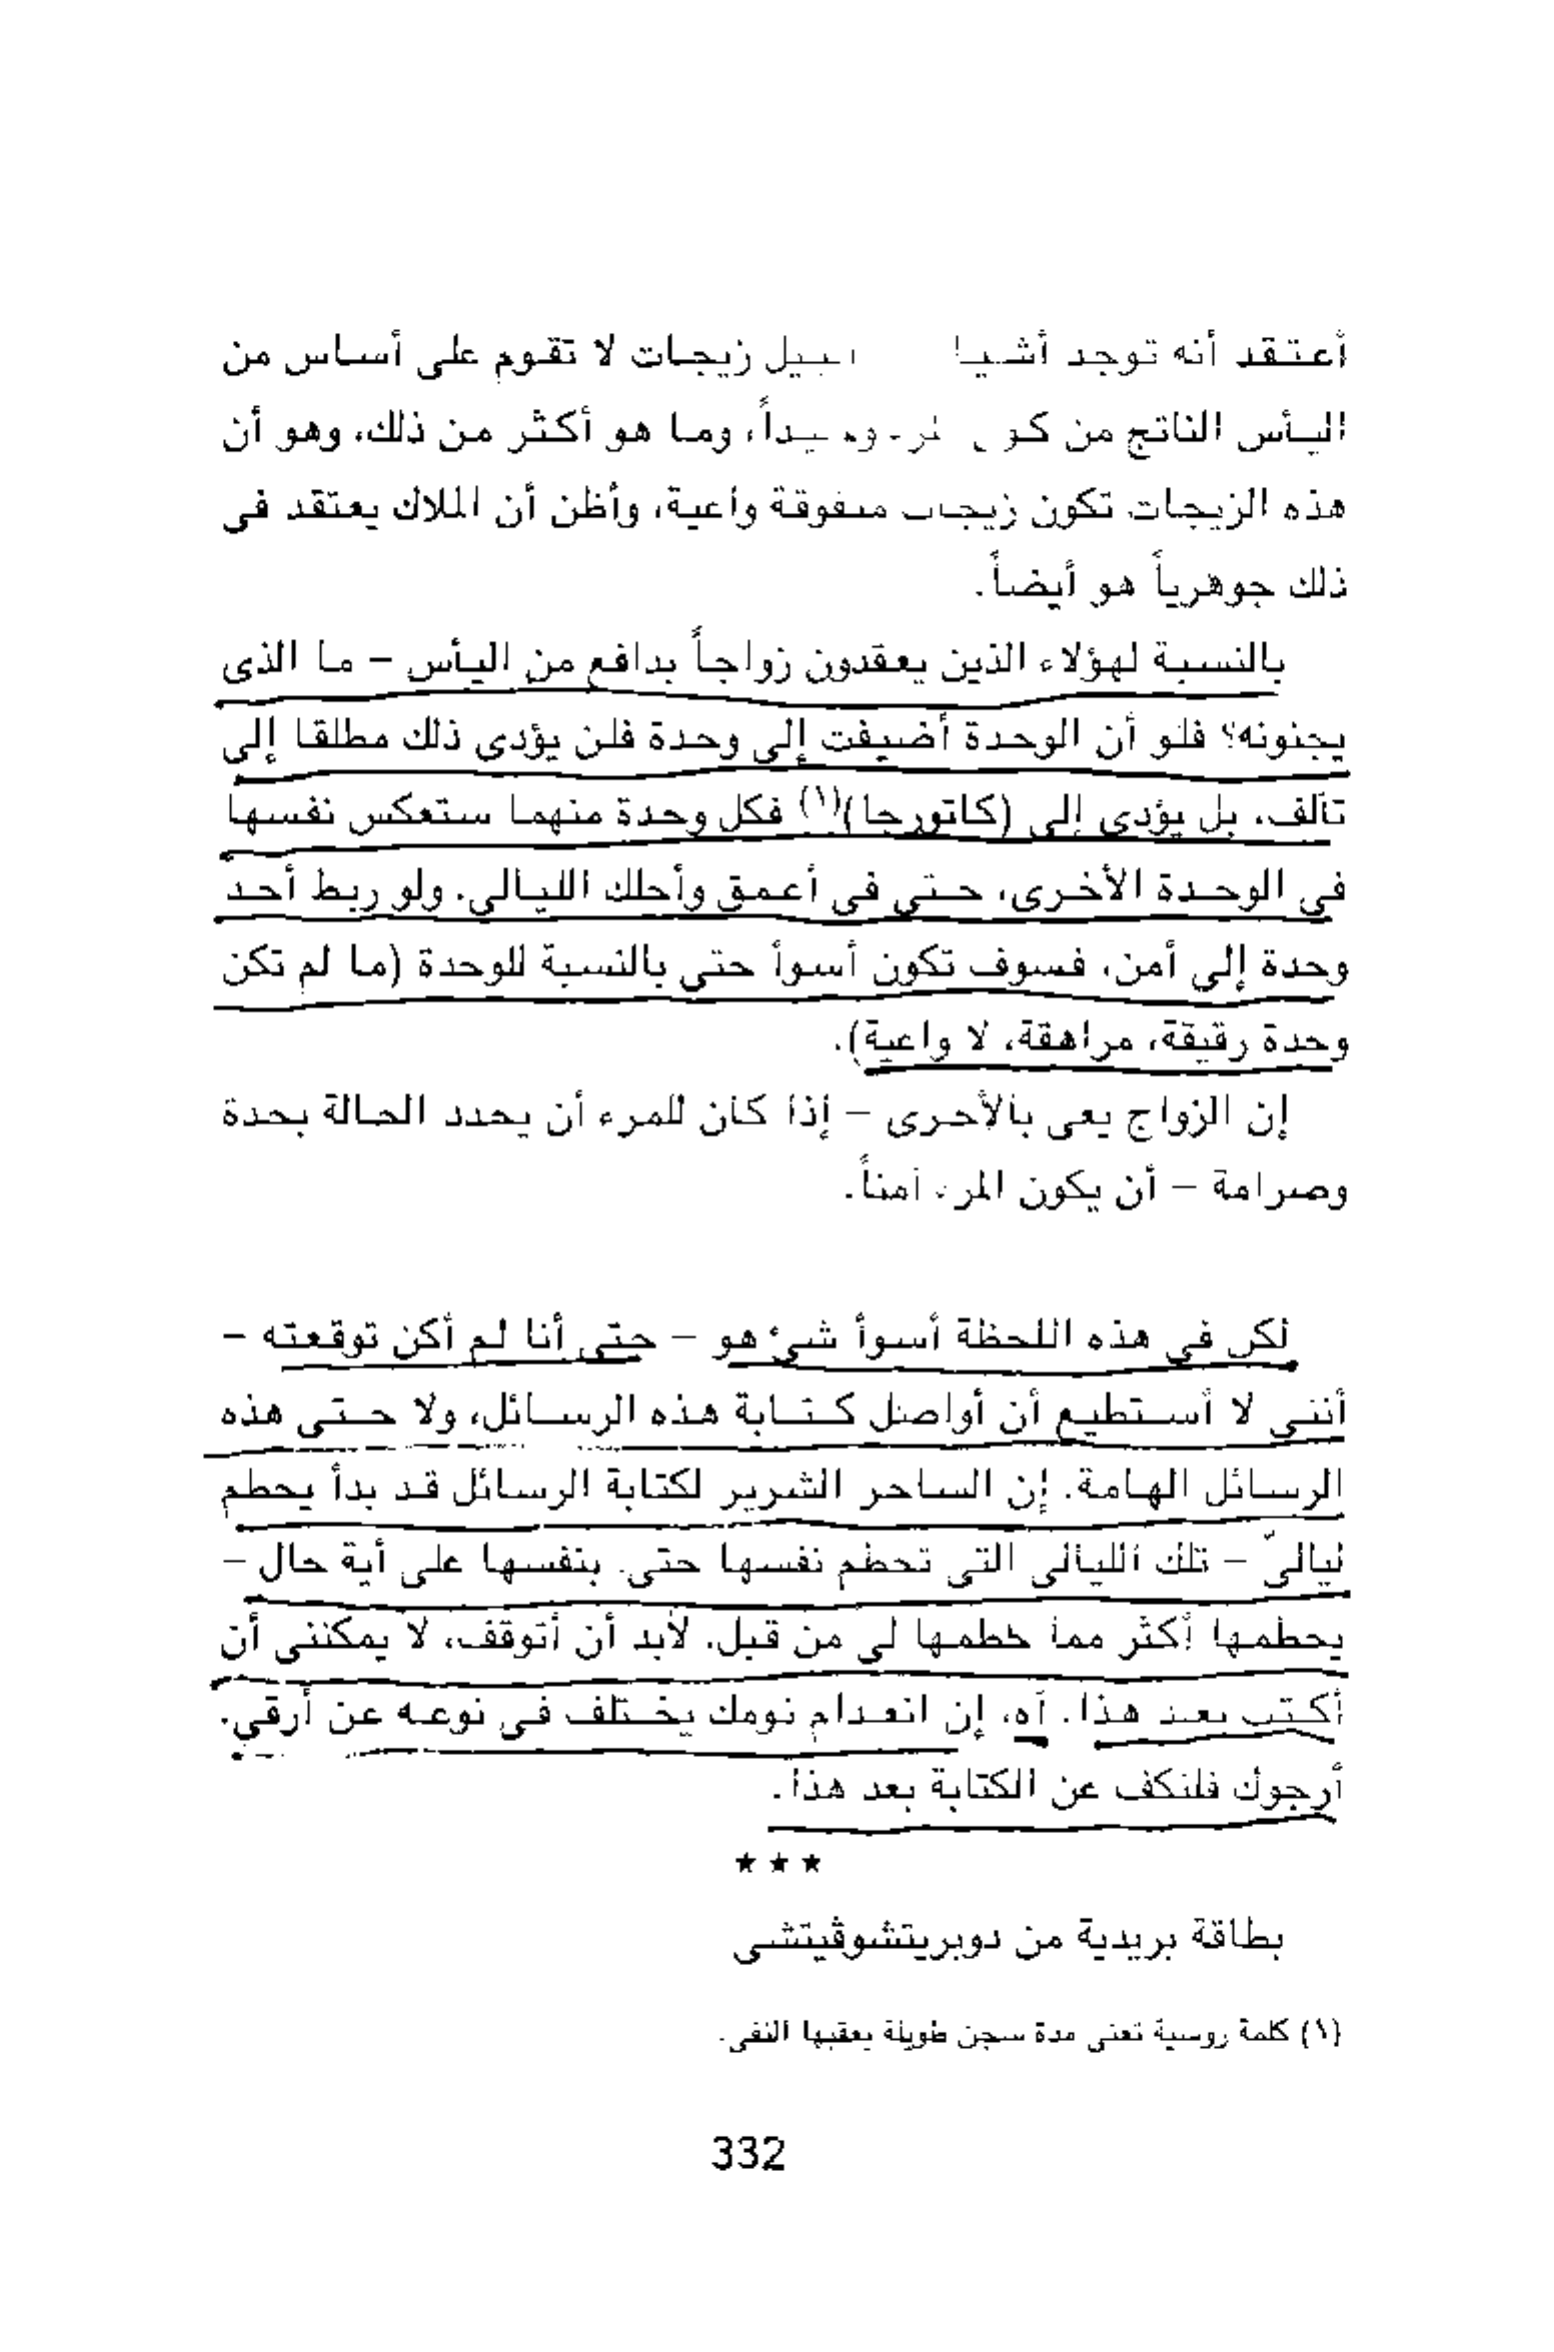 أعتقد أنه توجد زيجات لا تقوم على أساس من
اليأس الناتج من وحيداً، وما هو أكثر من ذلك، وهو أن
هذه الزيجات تكون زيجات متفوقة واعية، وأظن أن الملاك يعتقد فى
ذلك جوهرياً هو أيضاً.
بالنسبة لهؤلاء الذين يعقدون زواجاً بدافع من اليأس – ما الذى
يجنونه؟ فلو أن الوحدة أضيفت إلى وحدة فلن يؤدى ذلك مطلقا إلى
تآلف، بل يؤدى إلى (كاتورجا)(١) فكل وحدة منهما ستعكس نفسها
فى الوحدة الأخرى، حتى فى أعمق وأحلك الليالي. ولو ربط أحد
وحدة إلى أمن، فسوف تكون أسوأ حتى بالنسبة للوحدة (ما لم تكن
وحدة رقيقة، مراهقة، لا واعية).
إن الزواج يعى بالأحرى – إذا كان للمرء أن يحدد الحالة بحدة
وصرامة – أن يكون المرء آمناً.
لكن فى هذه اللحظة أسوأ شئ هو – حتى أنا لم أكن توقعته –
أننى لا أستطيع أن أواصل كتابة هذه الرسائل، ولا حتى هذه
الرسائل الهامة. إن الساحر الشرير لكتابة الرسائل قد بدأ يحطم
ليالىّ – تلك الليالى التى تحطم نفسها حتى بنفسها على أية حال –
يحطمها أكثر مما حطمها لى من قبل. لابد أن أتوقف، لا يمكننى أن
أكتب بعد هذا. آه، إن انعدام نومك يختلف فى نوعه عن أرقي.
أرجوك فلنكف عن الكتابة بعد هذا.
★ ★ ★
بطاقة بريدية من دوبريتشوڤيتشى
(١) كلمة روسية تعنى مدة سجن طويلة يعقبها النفى.
332